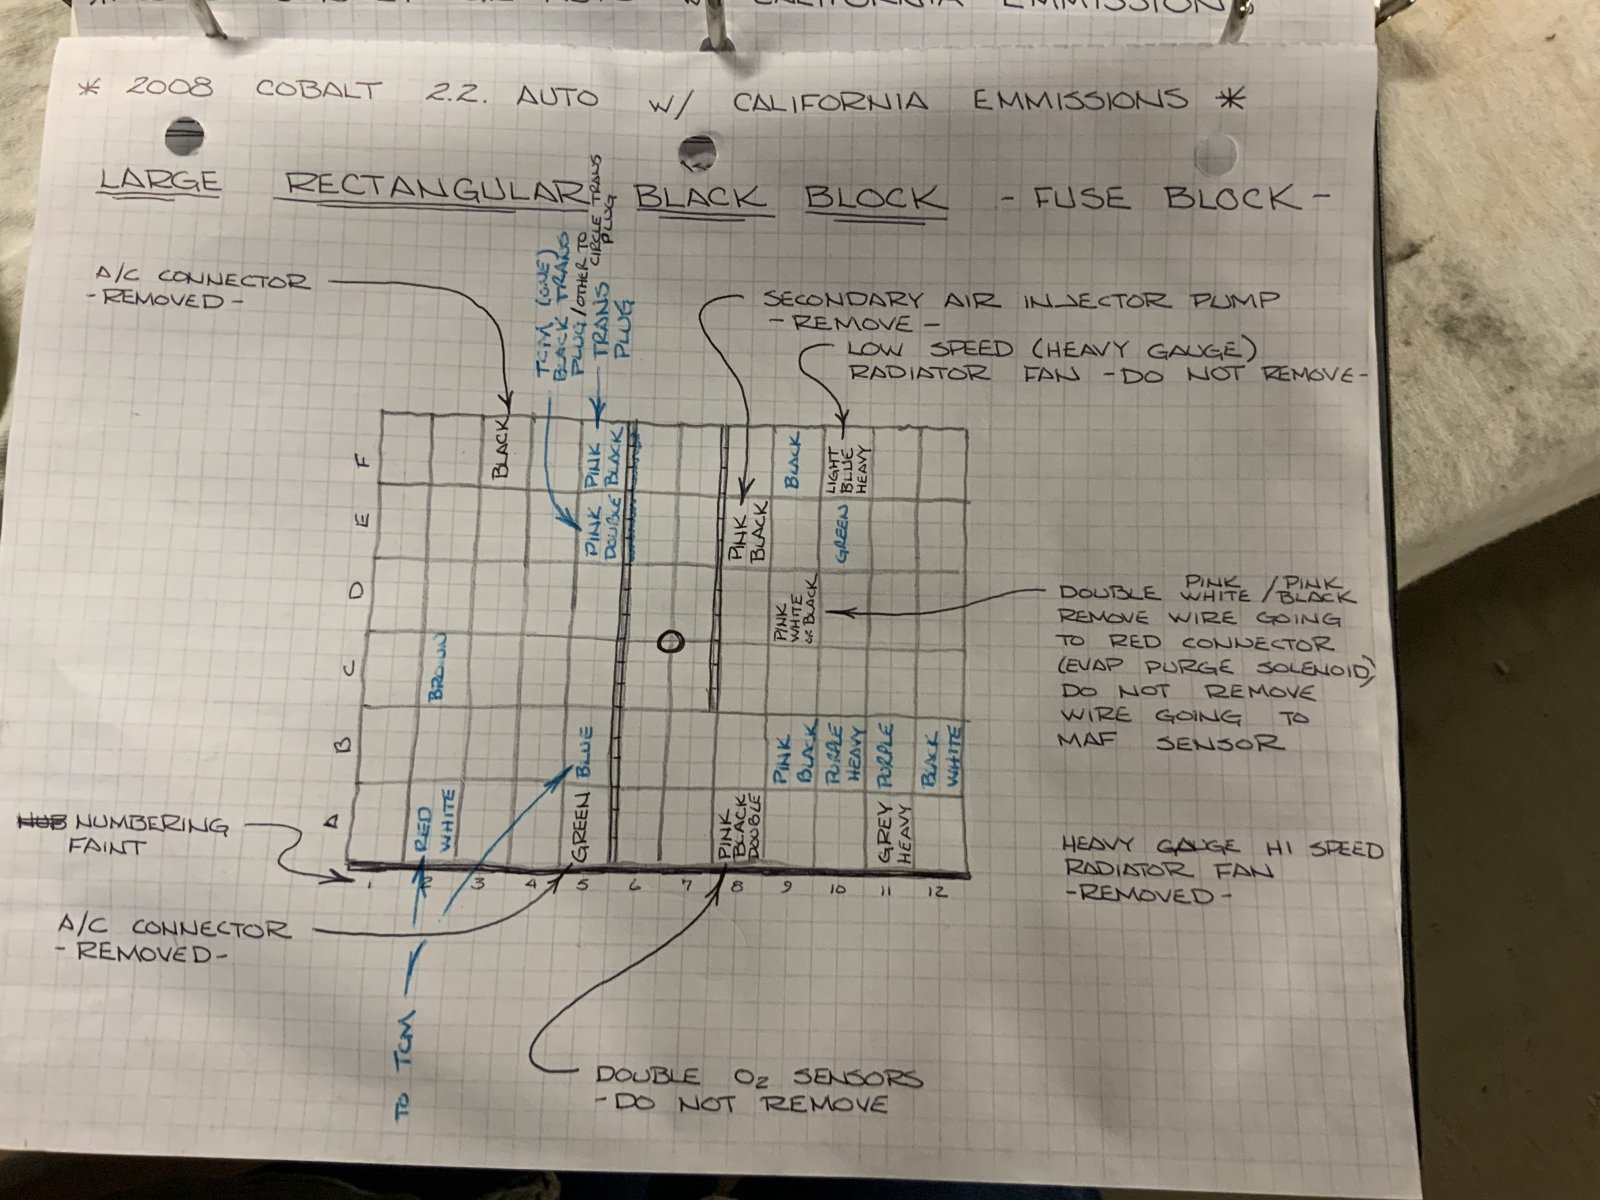 * 2008 COBALT 2.2. AUTO W/ CALIFORNIA EMMISSIONS *
LARGE RECTANGULAR BLACK BLOCK - FUSE BLOCK -
A/C CONNECTOR
- REMOVED -
TCM (ONE)
BLACK TRANS
PLUG / OTHER TO
CIRCLE TRANS
PLUG
TRANS
PLUG
SECONDARY AIR INJECTOR PUMP
- REMOVE -
LOW SPEED (HEAVY GAUGE)
RADIATOR FAN - DO NOT REMOVE -
F
BLACK
PINK
BLACK
BLACK
LIGHT
BLUE
HEAVY
E
PINK
DOUBLE
PINK
BLACK
GREEN
D
PINK
WHITE
OR BLACK
DOUBLE PINK WHITE / PINK BLACK
REMOVE WIRE GOING
TO RED CONNECTOR
(EVAP PURGE SOLENOID)
DO NOT REMOVE
WIRE GOING TO
MAF SENSOR
C
BROWN
B
BLUE
PINK
BLACK
PURPLE
HEAVY
PURPLE
BLACK
WHITE
A
RED
WHITE
GREEN
PINK
BLACK
DOUBLE
GREY
HEAVY
NUMBERING
FAINT
HEAVY GAUGE HI SPEED
RADIATOR FAN
- REMOVED -
1 2 3 4 5 6 7 8 9 10 11 12
A/C CONNECTOR
- REMOVED -
TO TCM
DOUBLE O2 SENSORS
- DO NOT REMOVE